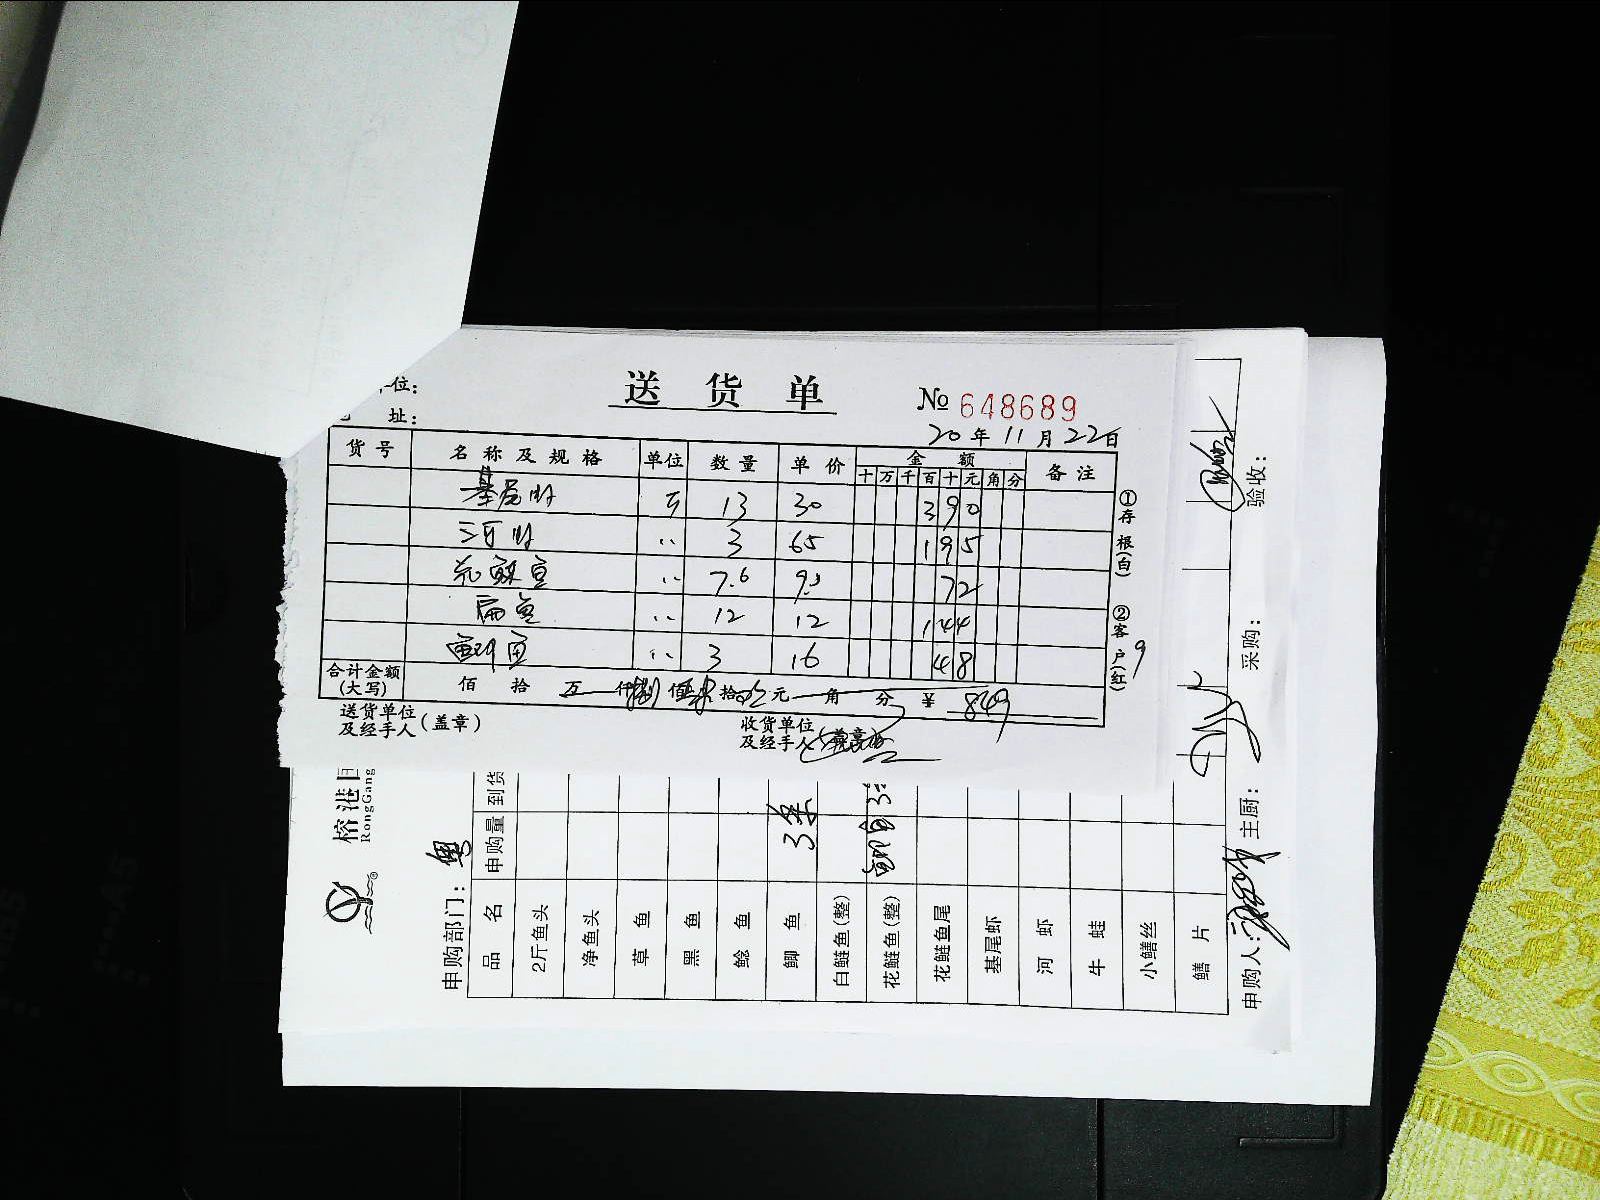 位：
址：
送货单
№ 648689
20年11月22日
货号 名称及规格 单位 数量 单价 金额 备注
十 万 千 百 十 元 角 分
基尾虾 斤 13 30 390
河虾 〃 3 65 195
花鲢鱼 〃 7.6 9.5 72
扁鱼 〃 12 12 144
鱼 〃 3 16 48
合计金额(大写) 佰 拾 万 仟 捌 佰 肆 拾 玖 元 角 分 ¥ 849
送货单位及经手人(盖章)
收货单位及经手人
①存根(白)
②客户(红)
9
榕港
RongGang
申购部门：粤
品名 申购量 到货
2斤鱼头
净鱼头
草鱼
黑鱼
鲶鱼
鲫鱼 3条
白鲢鱼(整)
花鲢鱼(整)
花鲢鱼尾
基尾虾
河虾
牛蛙
小鳝丝
鳝片
申购人：
主厨：
采购：
验收：